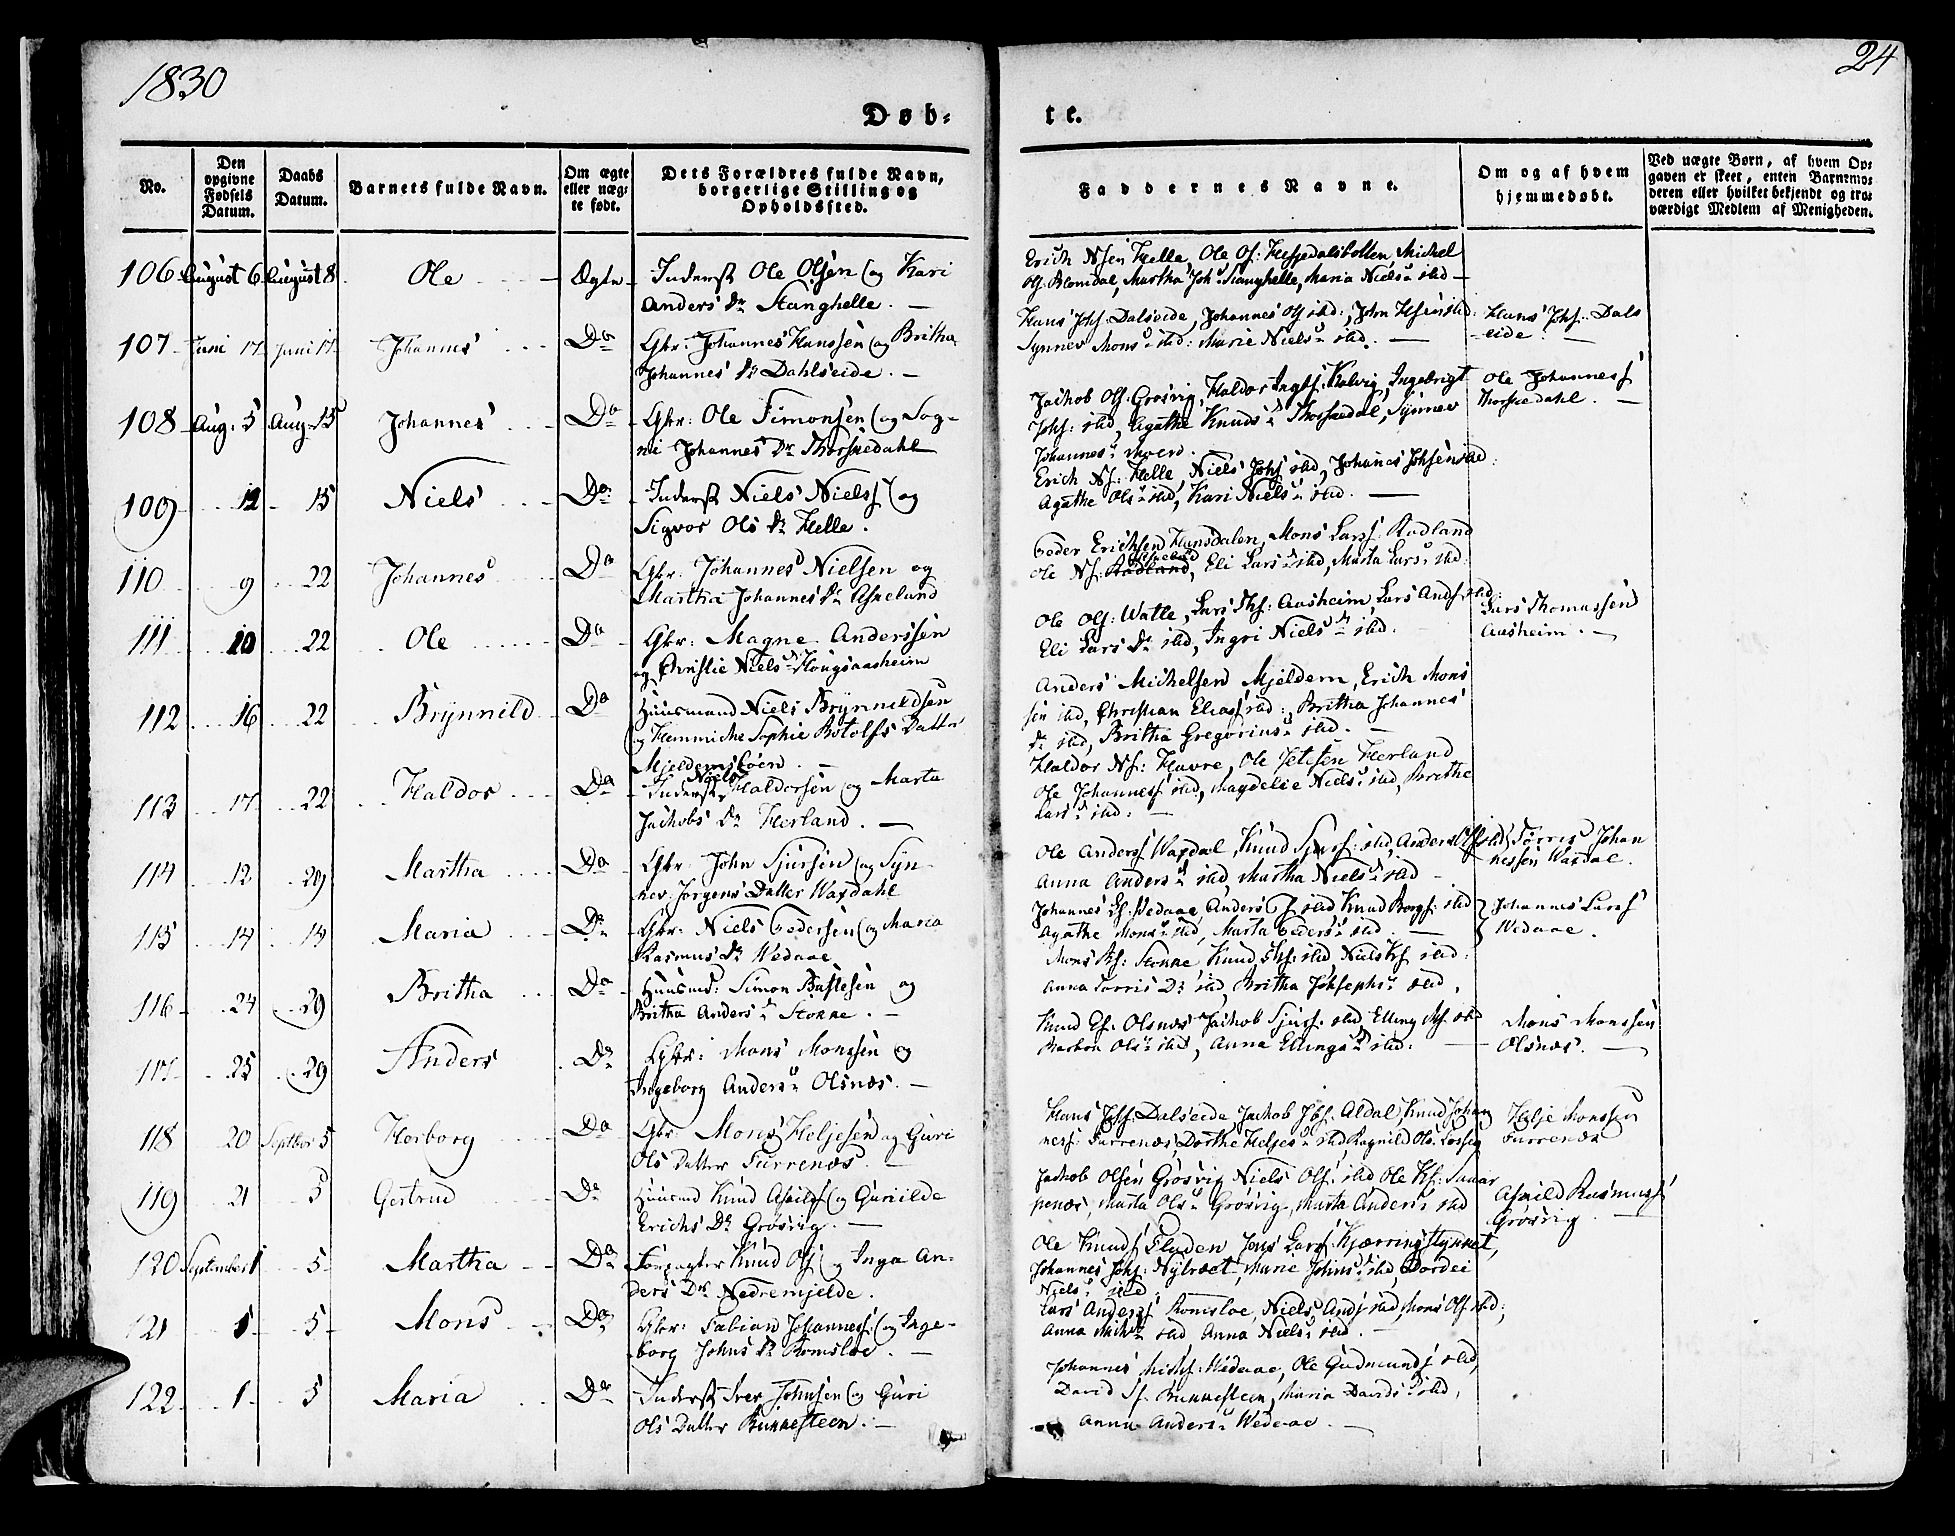 1830
24
Døb-
te.
No.
Den opgivne Fødsels Datum.
Daabs Datum.
Barnets fulde Navn.
Om ægte eller nægte født.
Dets Forældres fulde Navn, borgerlige Stilling og Opholdssted.
Faddernes Navne.
Om og af hvem hjemmedøbt.
Ved nægte Børn, af hvem Opgaven er skeet, enten Barnemoderen eller hvilket bekjendt og troværdigt Medlem af Menigheden.
106 August 6 August 8 Ole Ægte Inderst Ole Olsen og Kari
Anders Dr Stanghelle.
Erich Nsen Helle, Ole Os: Hesjedalsbotten, Michel
Ols. Blomdal, Martha Joh. Stanghelle, Maria Niels sted
107 Juni 17 Juni 17 Johannes Do Gbr: Johannes Hanssen og Britha
Johannes Dr Dahlseide.
Hans Johs: Dalseide, Johannes Ols sted, John sted:
Synnev Mons sted: Marie Niels sted.
Hans Johs: Dals
eide.
108 Aug: 5 Aug: 15 Johannes Do Gbr: Ole Simonsen og Sog-
ni Johannes Dr Thorskedahl
Jachob Ols: Grøsvig, Haldor Ingbs: Kalvig, Ingebrigt
Johs: sted, Agathe Knuds Thorskedal, Synnev
Johannes
Ole Johanness
Thorskedahl.
109 12 15 Niels Do Inderst Niels Nielss og
Sigvor Ols Dr Helle.
Erich Ns: Helle, Niels Johs sted, Johanes Johsen sted:
Agathe Ols sted, Kari Niels sted.
110 9 22 Johannes Do Gbr: Johannes Nielsen og
Martha Johannes Dr Askeland
Peder Erichsen Hunsdalen, Mons Larss Radland
Ole Ns: Radland, Eli Lars sted, Marta Lars sted.
111 10 22 Ole Do Gbr: Magne Anderssen
og Christie Niels Hougsaasheim
Ole Ols: Watle, Lars Ths: Aasheim, Lars Ands sted:
Eli Lars Dr sted, Ingri Niels sted.
Lars Thomassen
Aasheim.
112 16 22 Brynnild Do Huusmand Niels Brynnildsen
og Hemmiche Sophie Botolfs Datter
Mjeldem
Anders Michelsen Mjeldem, Erich Mons
sen sted, Christian Eliass sted, Britha Johannes
Dr sted, Britha Gregorius sted.
113 17 22 Haldor Do Inderst Niels Haldorsen og Marta
Jachobs Dr Herland.
Haldor Ns: Havre, Ole Herland
Ole Johanness sted, Magdelie Niels sted, Brithe
Lars sted:
114 12 29 Martha Do Gbr: John Sjursen og Syn
nev Jørgens Datter Wasdahl
Ole Anderss Wasdal, Knud Sjurs: sted, Anders sted
Anna Anders sted, Martha Niels sted
Torris Johan
nessen Wasdal.
115 14 14 Maria Do Gbr: Niels Pedersen og Maria
Rasmus Dr Wedaae
Johannes Ls: Wedaae, Anders sted Knud Borgs: sted
Agathe Mons sted, Marta Peders sted.
Johannes Larss
Wedaae.
116 24 29 Britha Do Huusmd: Simon Bastesen og
Britha Anders Stokke.
Mons Stokke Knud sted, Niels Ks sted:
Anna Torris Dr sted, Britha Johsephs sted.
117 25 29 Anders Do Gbr: Mons Monssen og
Ingeborg Anders Olsnæs.
Knud Es: Olsnæs Jachob Sjurs: sted, Elling Ms. sted
Barbra Ols sted, Anna Ellings sted.
Mons Monssen
Olsnæs.
118 20 Septbr 5 Herborg Do Gbr: Mons Heljesen og Guri
Ols Datter Furrenæs.
Hans Johs: Dalseide, Jachob Aldal, Knud Johan
ness: Furrenæs, Dorthe Heljes sted, Ragnild Ols
Helje Monssen
Furrenæs
119 21 5 Gertrud Do Huusmd Knud Askilds og Guriilde
Erichs Dr Grøsvig.
Jachob Olsen Grøsvig Niels Ols: sted Ole Ks:
Marta Ols Grøsvig, Marta Anders sted
Askild Rasmuss
Grøsvig
120 September 1 5 Martha Do Forpagter Knud Ols og Inga An-
ders Dr Nedremjelde.
Ole Knuds Fladen, Jens Larss Kjærringstynnet,
Johannes Johs: Nybræet, Marie Johns sted, Dordei
Niels sted
121 5 5 Mons Do Gbr: Fabian Johanness: og Inge-
borg Johns Dr Romsloe.
Lars Anderss Romsloe, Niels Ands sted, Mons Ols sted;
Anna Mich sted Anna Niels sted.
122 1 5 Maria Do Inderst Iver Johnsen og Guri
Ols Datter Bukkesteen.
Johannes Wedaae, Ole Gudmunds sted,
David Bukkesteen, Maria Davids sted,
Anna Anders Wedaae.